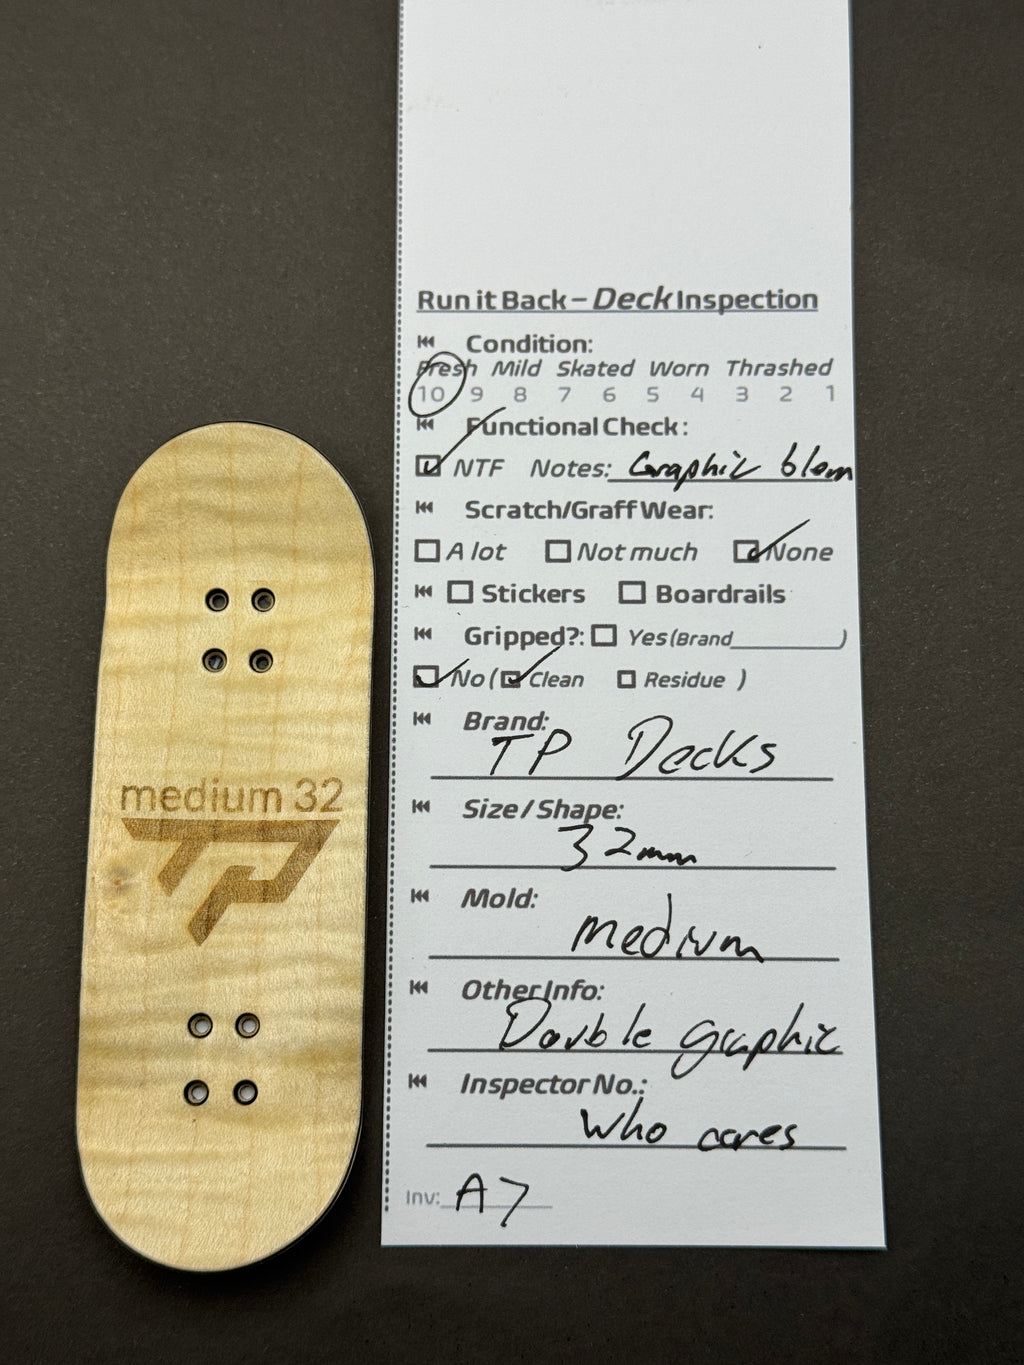 medium 32
TP
Run it Back – Deck Inspection
Condition:
Fresh Mild Skated Worn Thrashed
10 9 8 7 6 5 4 3 2 1
Functional Check:
NTF Notes: Graphic blem
Scratch/Graff Wear:
A lot Not much None
Stickers Boardrails
Gripped?: Yes (Brand__________)
No ( Clean Residue )
Brand:
TP Decks
Size / Shape:
32mm
Mold:
medium
Other Info:
Double graphic
Inspector No.:
Who cares
Inv: A7